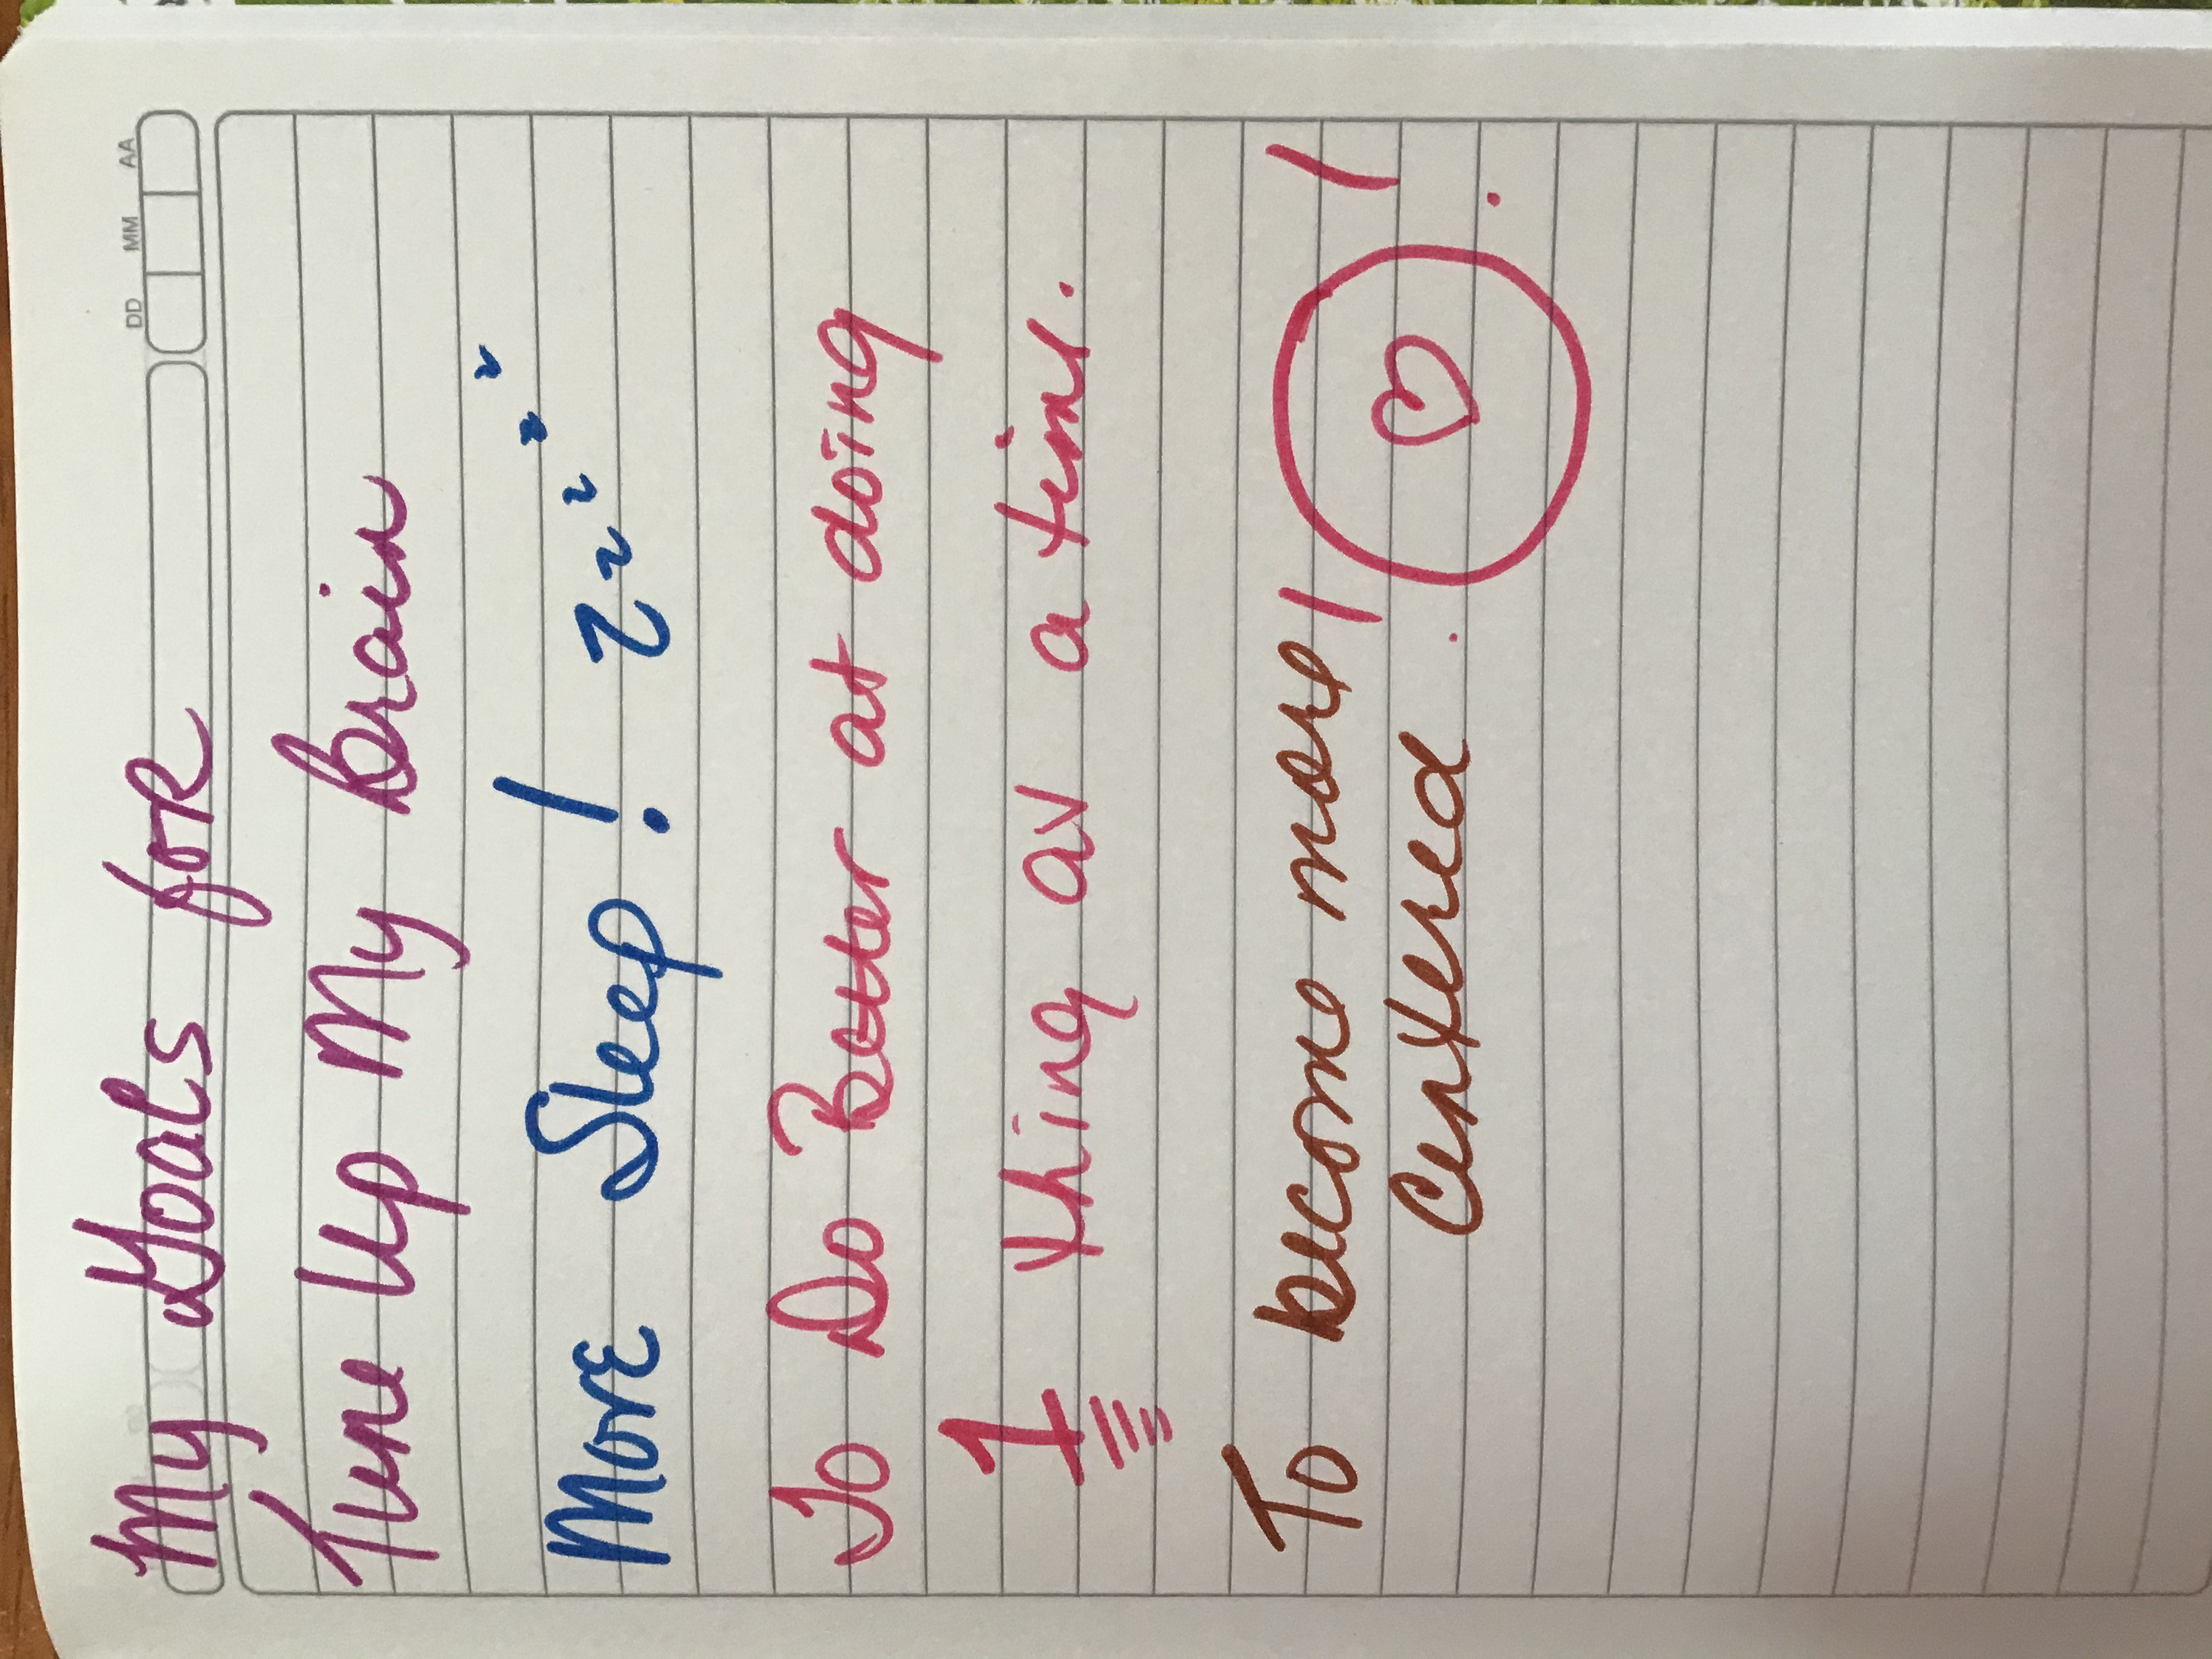 DD MM AA
My Goals foR
Tune Up My Brain
MorE Sleep! zzzzz
To Do Better at doing
1 thing av a time.
To become more
Centered